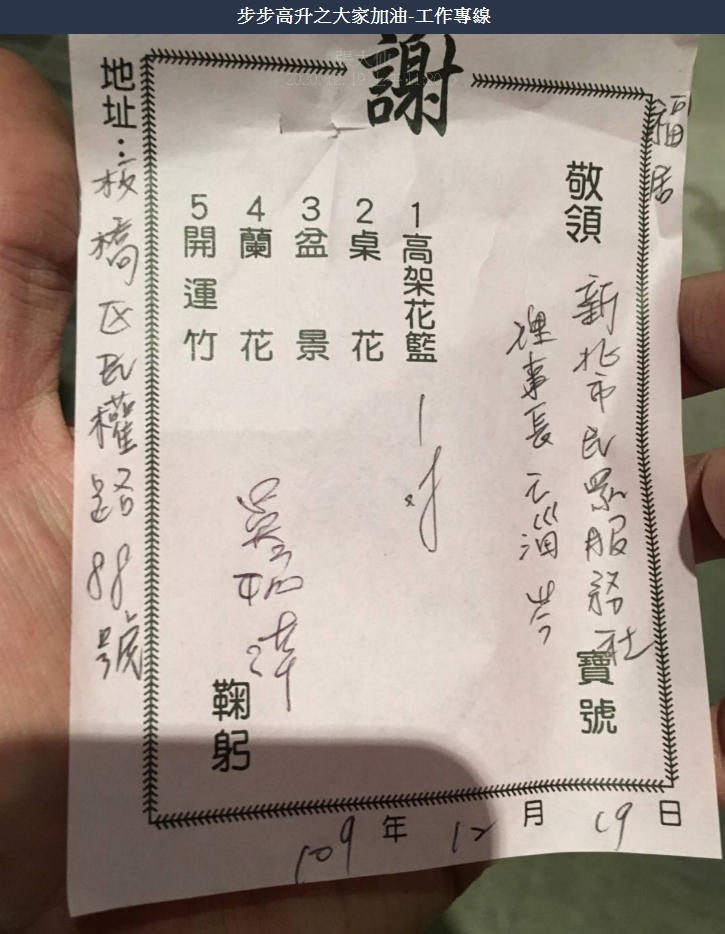 步步高升之大家加油-工作專線
2020.12.19
謝
福居
敬領
新北市民眾服務社
寶號
理事長
1高架花籃 1
2桌花
3盆景
4蘭花
5開運竹
鞠躬
地址：板橋区民權路88號
109年12月19日